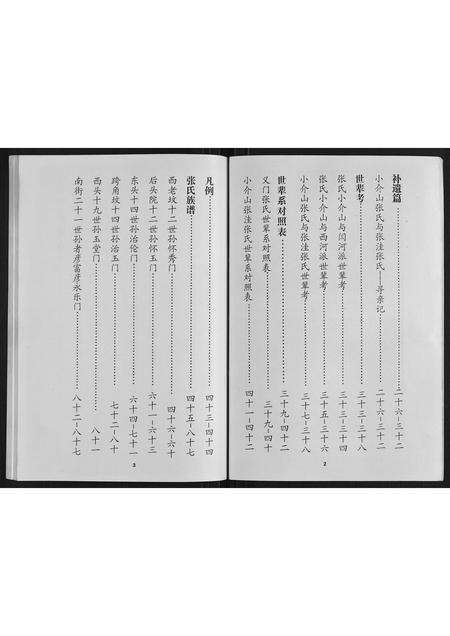 补遗篇……二十六-三十二
小介山张氏与张洼张氏——寻亲记……二十六-三十二
世辈考……三十三-三十八
张氏小介山与闫河派世辈考……三十三-三十四
张氏小介山与西河派世辈考……三十五-三十六
小介山张氏与张洼张氏世辈考……三十七-三十八
世辈系对照表……三十九-四十二
义门张氏世辈系对照表……三十九-四十
小介山张洼张氏世辈系对照表……四十一-四十二
2
凡例……四十三-四十四
张氏族谱……四十五-八十七
西老坟十二世孙怀秀门……四十六-六十
后头院十二世孙怀玉门……六十一-六十三
东头十四世孙治伦门……六十四-七十一
跨角坟十四世孙治玉门……七十二-八十
西头十九世孙玉堂门……八十一
南街二十一世孙考彦富彦永乐门……八十二-八十七
3